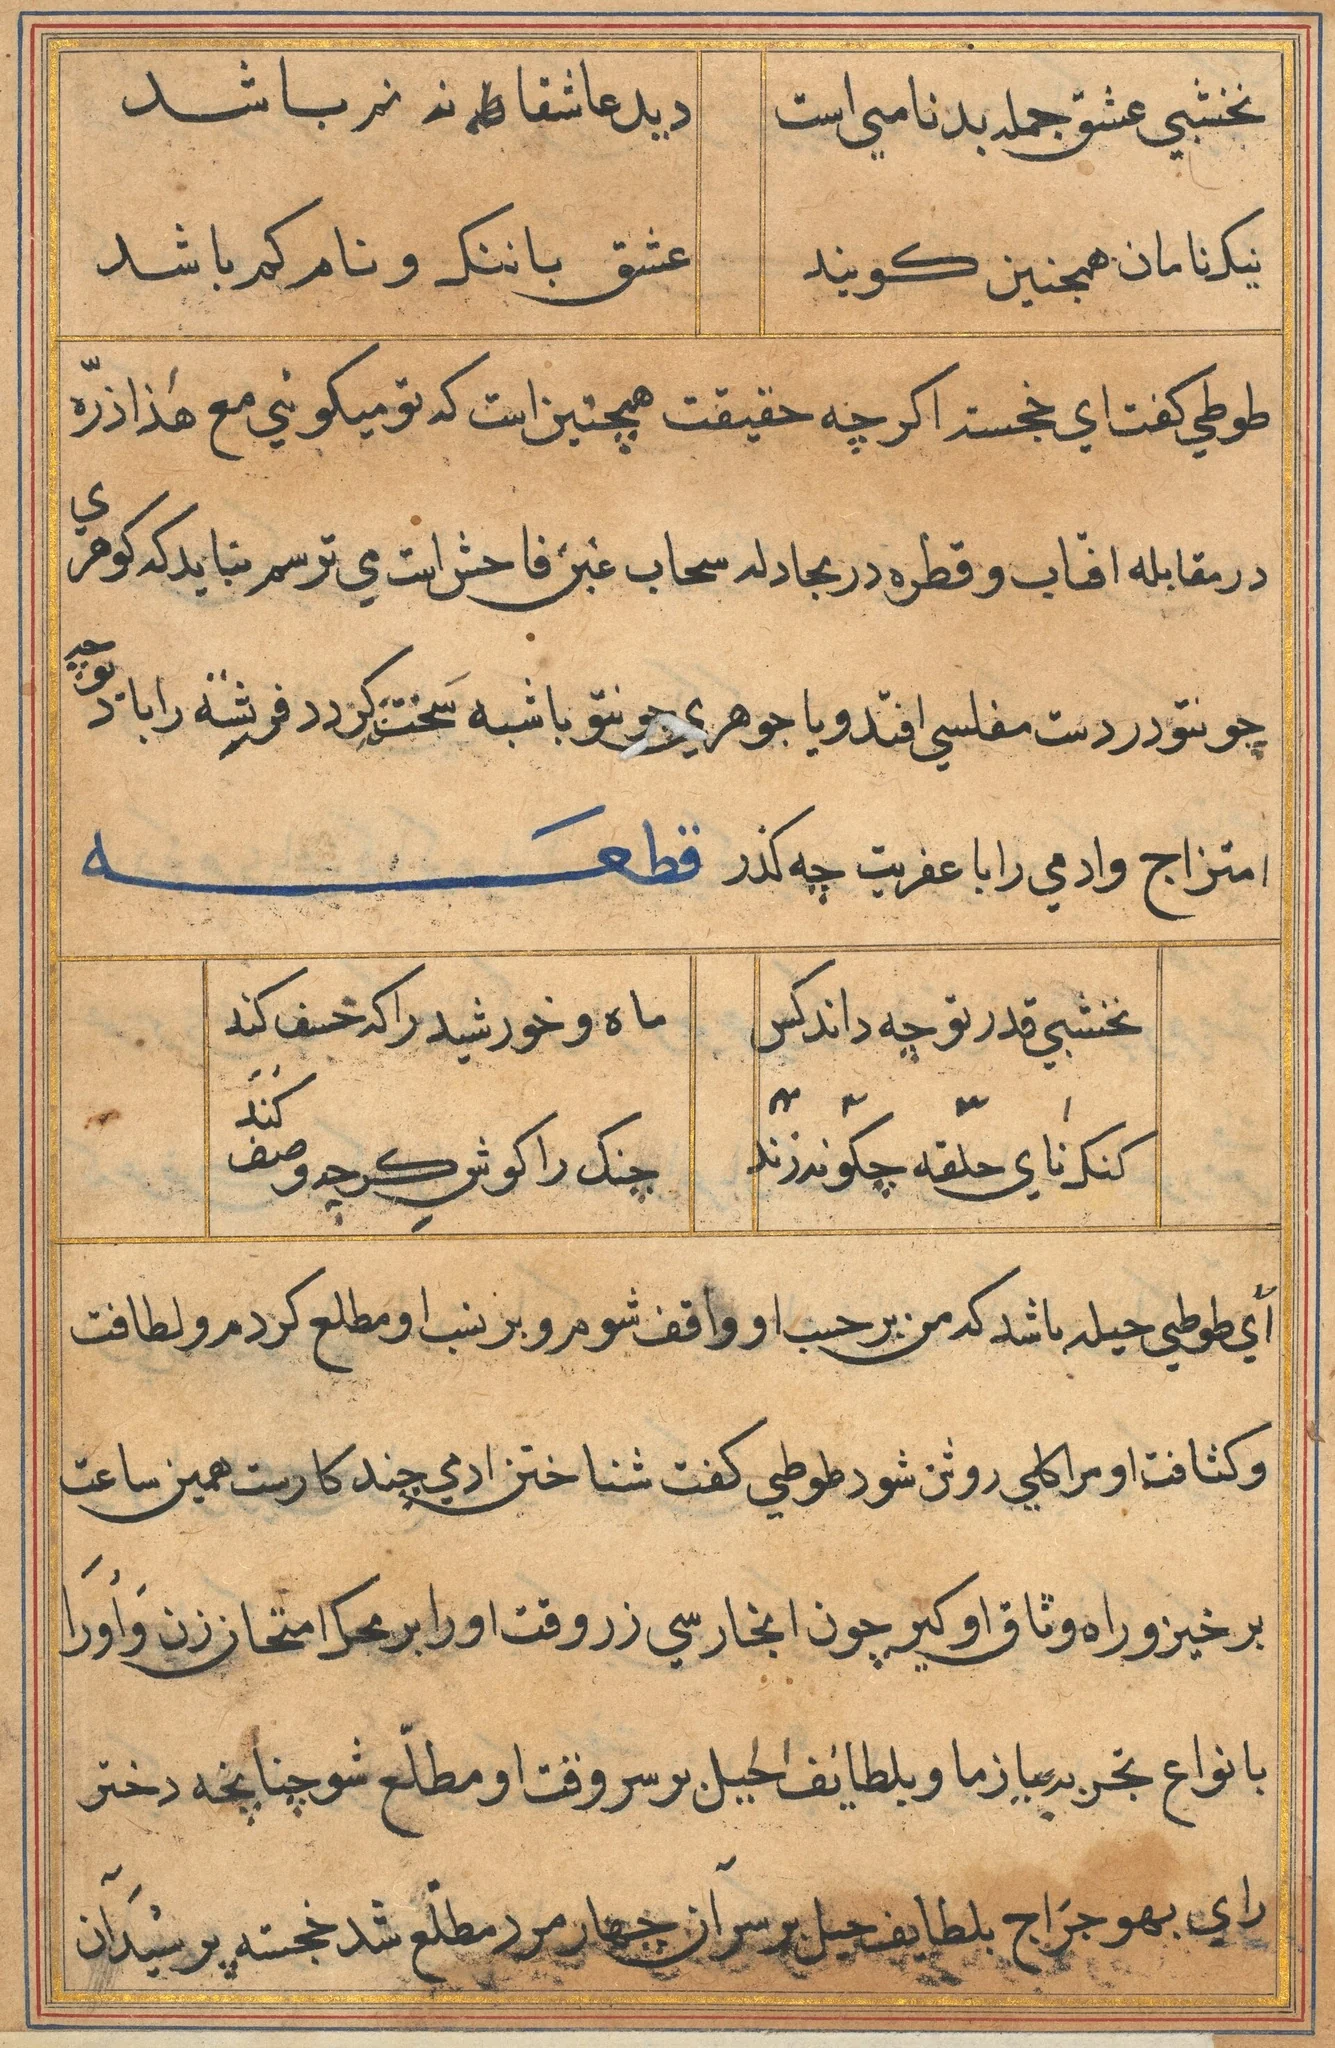 نخشبي عشق جمله بدنامي است
ديد عاشقا نه نم باشد
نيک نامان همجنين کويند
عشق باننک و نام کم باشد
طوطي کفت اي خجسته اکر چه حقيقت همچنين است که تو ميکوئي مع هذا ذرّه
در مقابله افتاب و قطره در مجادله سحاب غبن فاحش است مي ترسم نبايد که کوهري
چونتو در دست مفلسي افتد و يا جوهري چونتو باشبه سخت کردد فرشته را با ديو چه
امتزاج وادمي را با عفريت چه کذر قطعه
نخشبي قدر تو چه داند کس
ماه و خورشيد را که خسف کند
کنک ناي حلقه چکونه زند
چنک را کوش کر چه وصف کند
اي طوطي حيله باشد که من بر حسب او واقف شوم و بر نسب او مطلع کردم و لطافت
و کثافت او مرا کلي روشن شود طوطي کفت شناختن ادمي چند کارست همين ساعت
بر خيز و راه وثاق او کير چون انجا رسي زر وقت او را بر محک امتحان زن و او را
بانواع تجربه بيازما و بلطائف الحيل بر سر وقت او مطلّع شو چنانچه دختر
راي بهوجراج بلطايف حيل بر سر آن چهار مرد مطلّع شد خجسته پرسيد آن